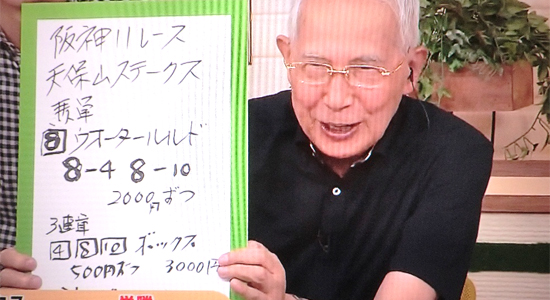 阪神11レース
天保山ステークス
馬単
8 ウオータールルド
8-4 8-10
2000円ずつ
3連単
4 8 10 ボックス
500円ずつ 3000円